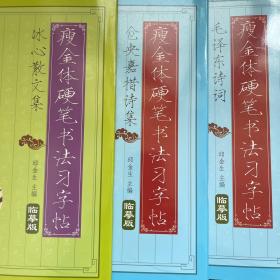 冰心散文集
瘦金体硬笔书法习字帖
邱金生 主编
临摹版
仓央嘉措诗集
瘦金体硬笔书法习字帖
邱金生 主编
临摹版
毛泽东诗词
瘦金体硬笔书法习字帖
邱金生 主编
临摹版